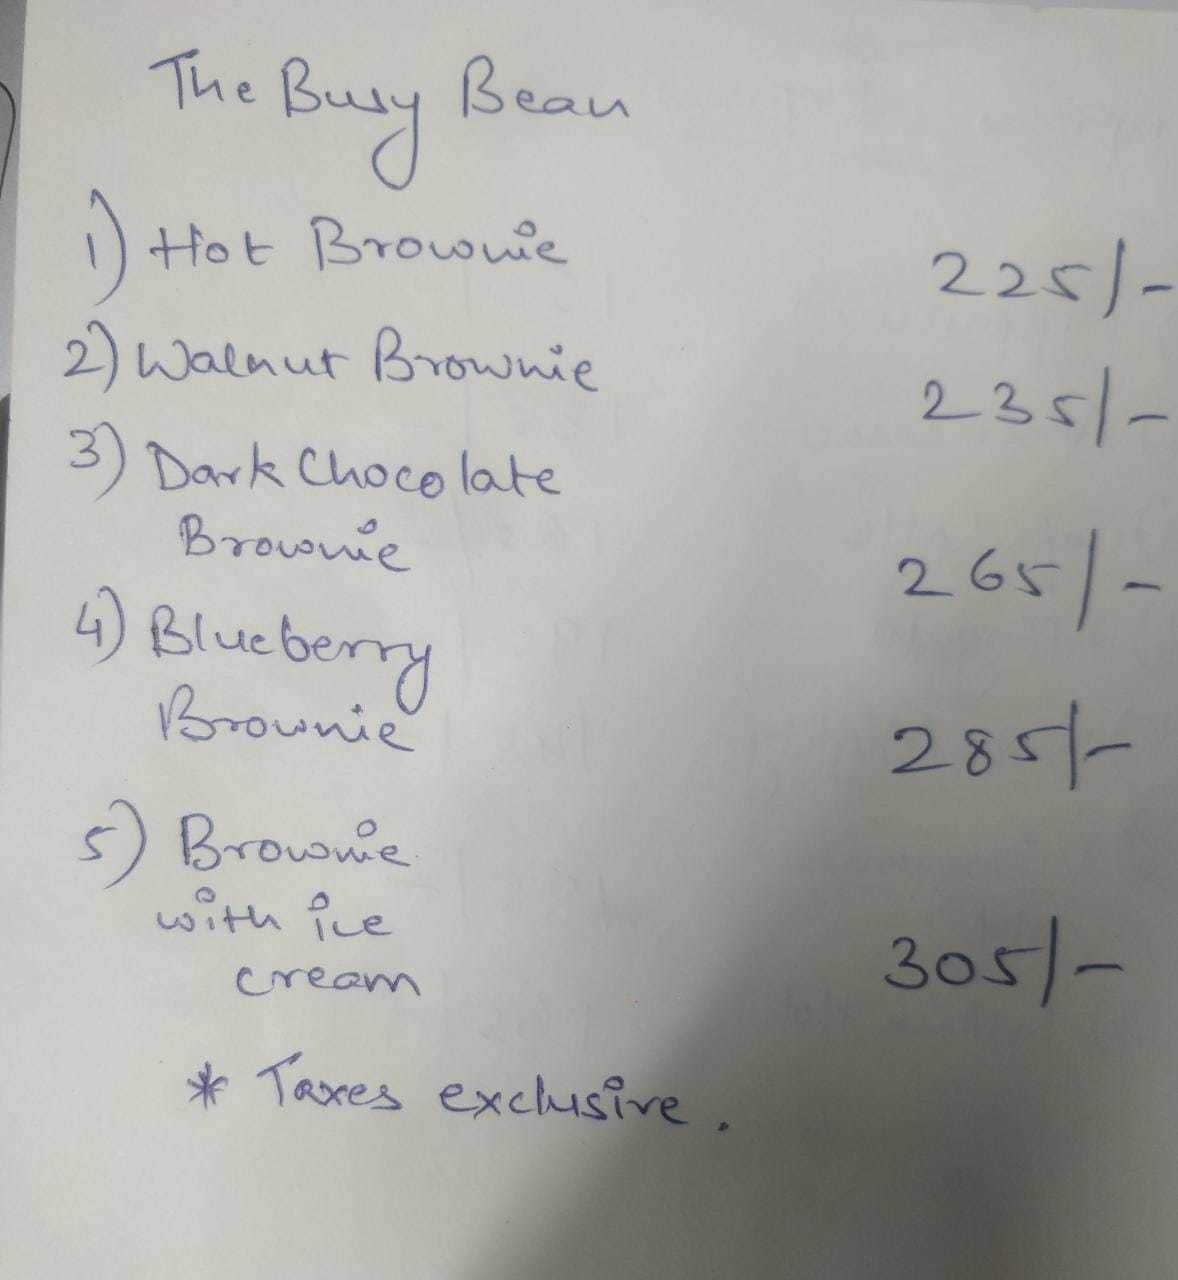 The Busy Bean
1) Hot Brownie 225/-
2) Walnut Brownie 235/-
3) Dark Chocolate
Brownie 265/-
4) Blueberry
Brownie 285/-
5) Brownie
with ice
cream 305/-
* Taxes exclusive.